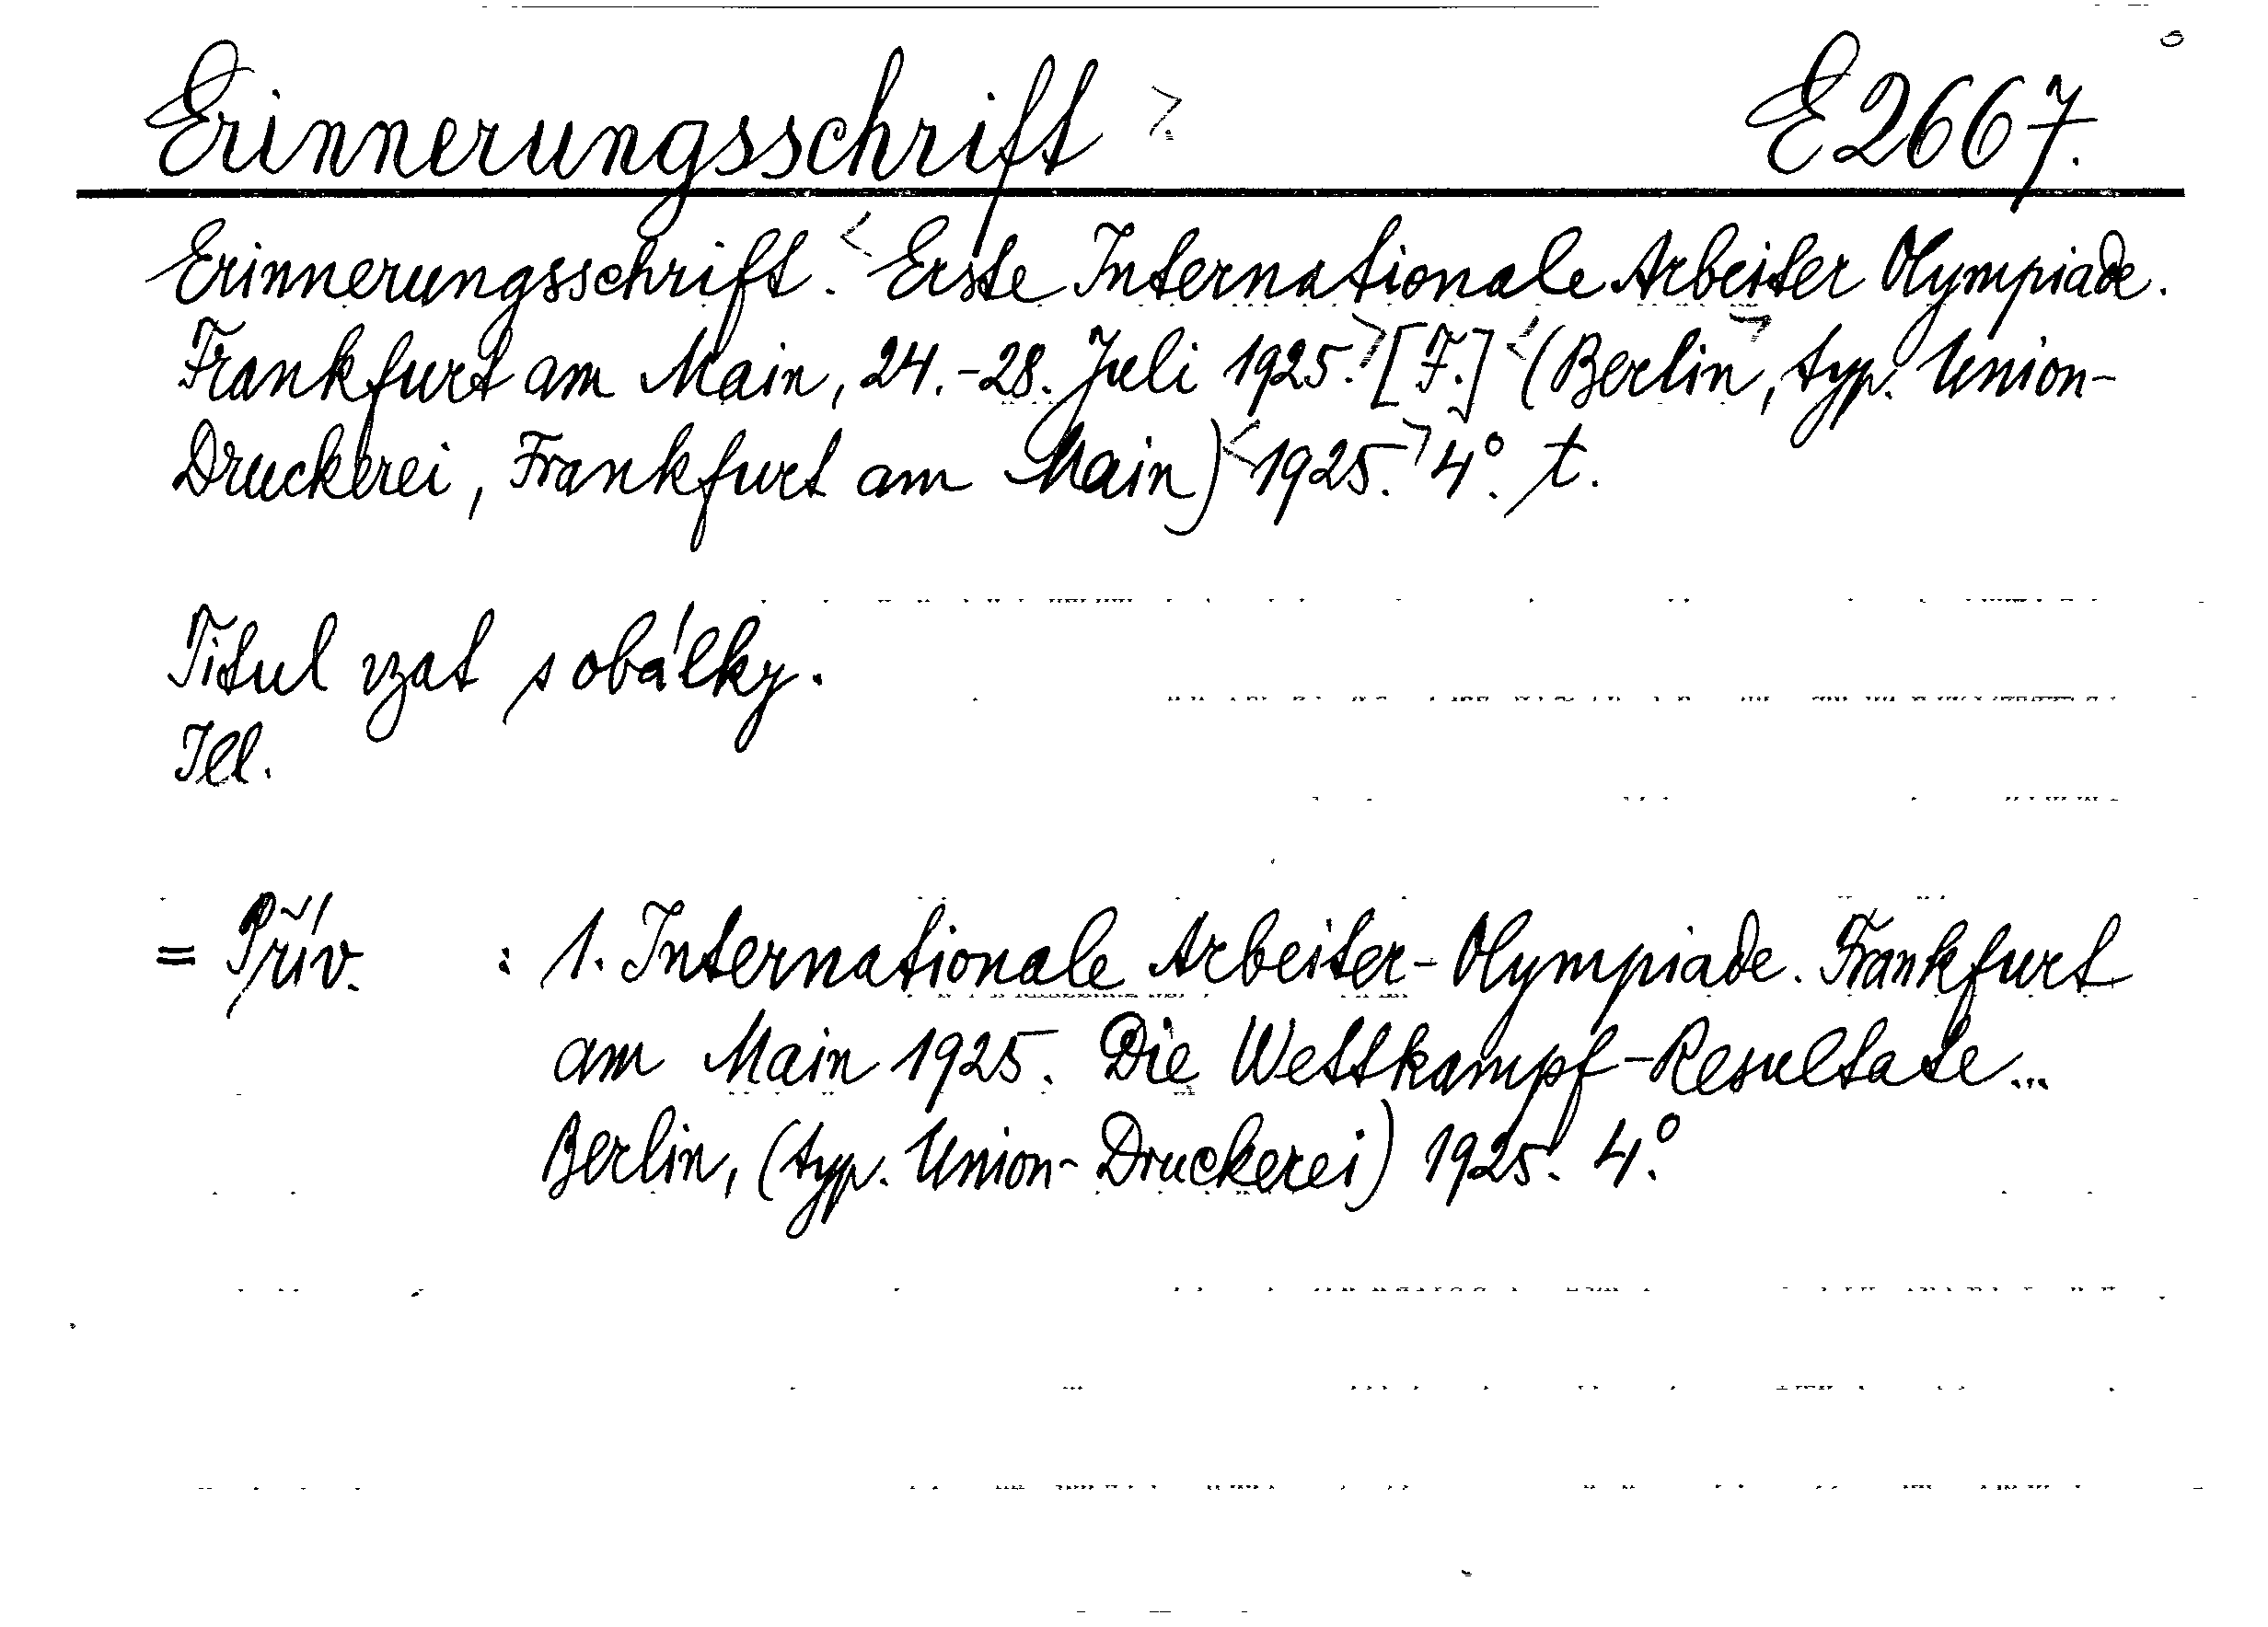 Erinnerungsschrift > E 2667.
Erinnerungsschrift. < Erste Internationale Arbeiter Olympiade.
Frankfurt am Main, 24.-28. Juli 1925. > [F.] < (Berlin >, typ. Union-
Druckerei, Frankfurt am Main) < 1925. > 4° t.
Titul vzat s obálky.
Ill.
= Přív. : 1. Internationale Arbeiter-Olympiade. Frankfurt
am Main 1925. Die Wettkampf-Resultate...
Berlin, (typ. Union-Druckerei) 1925. 4°.